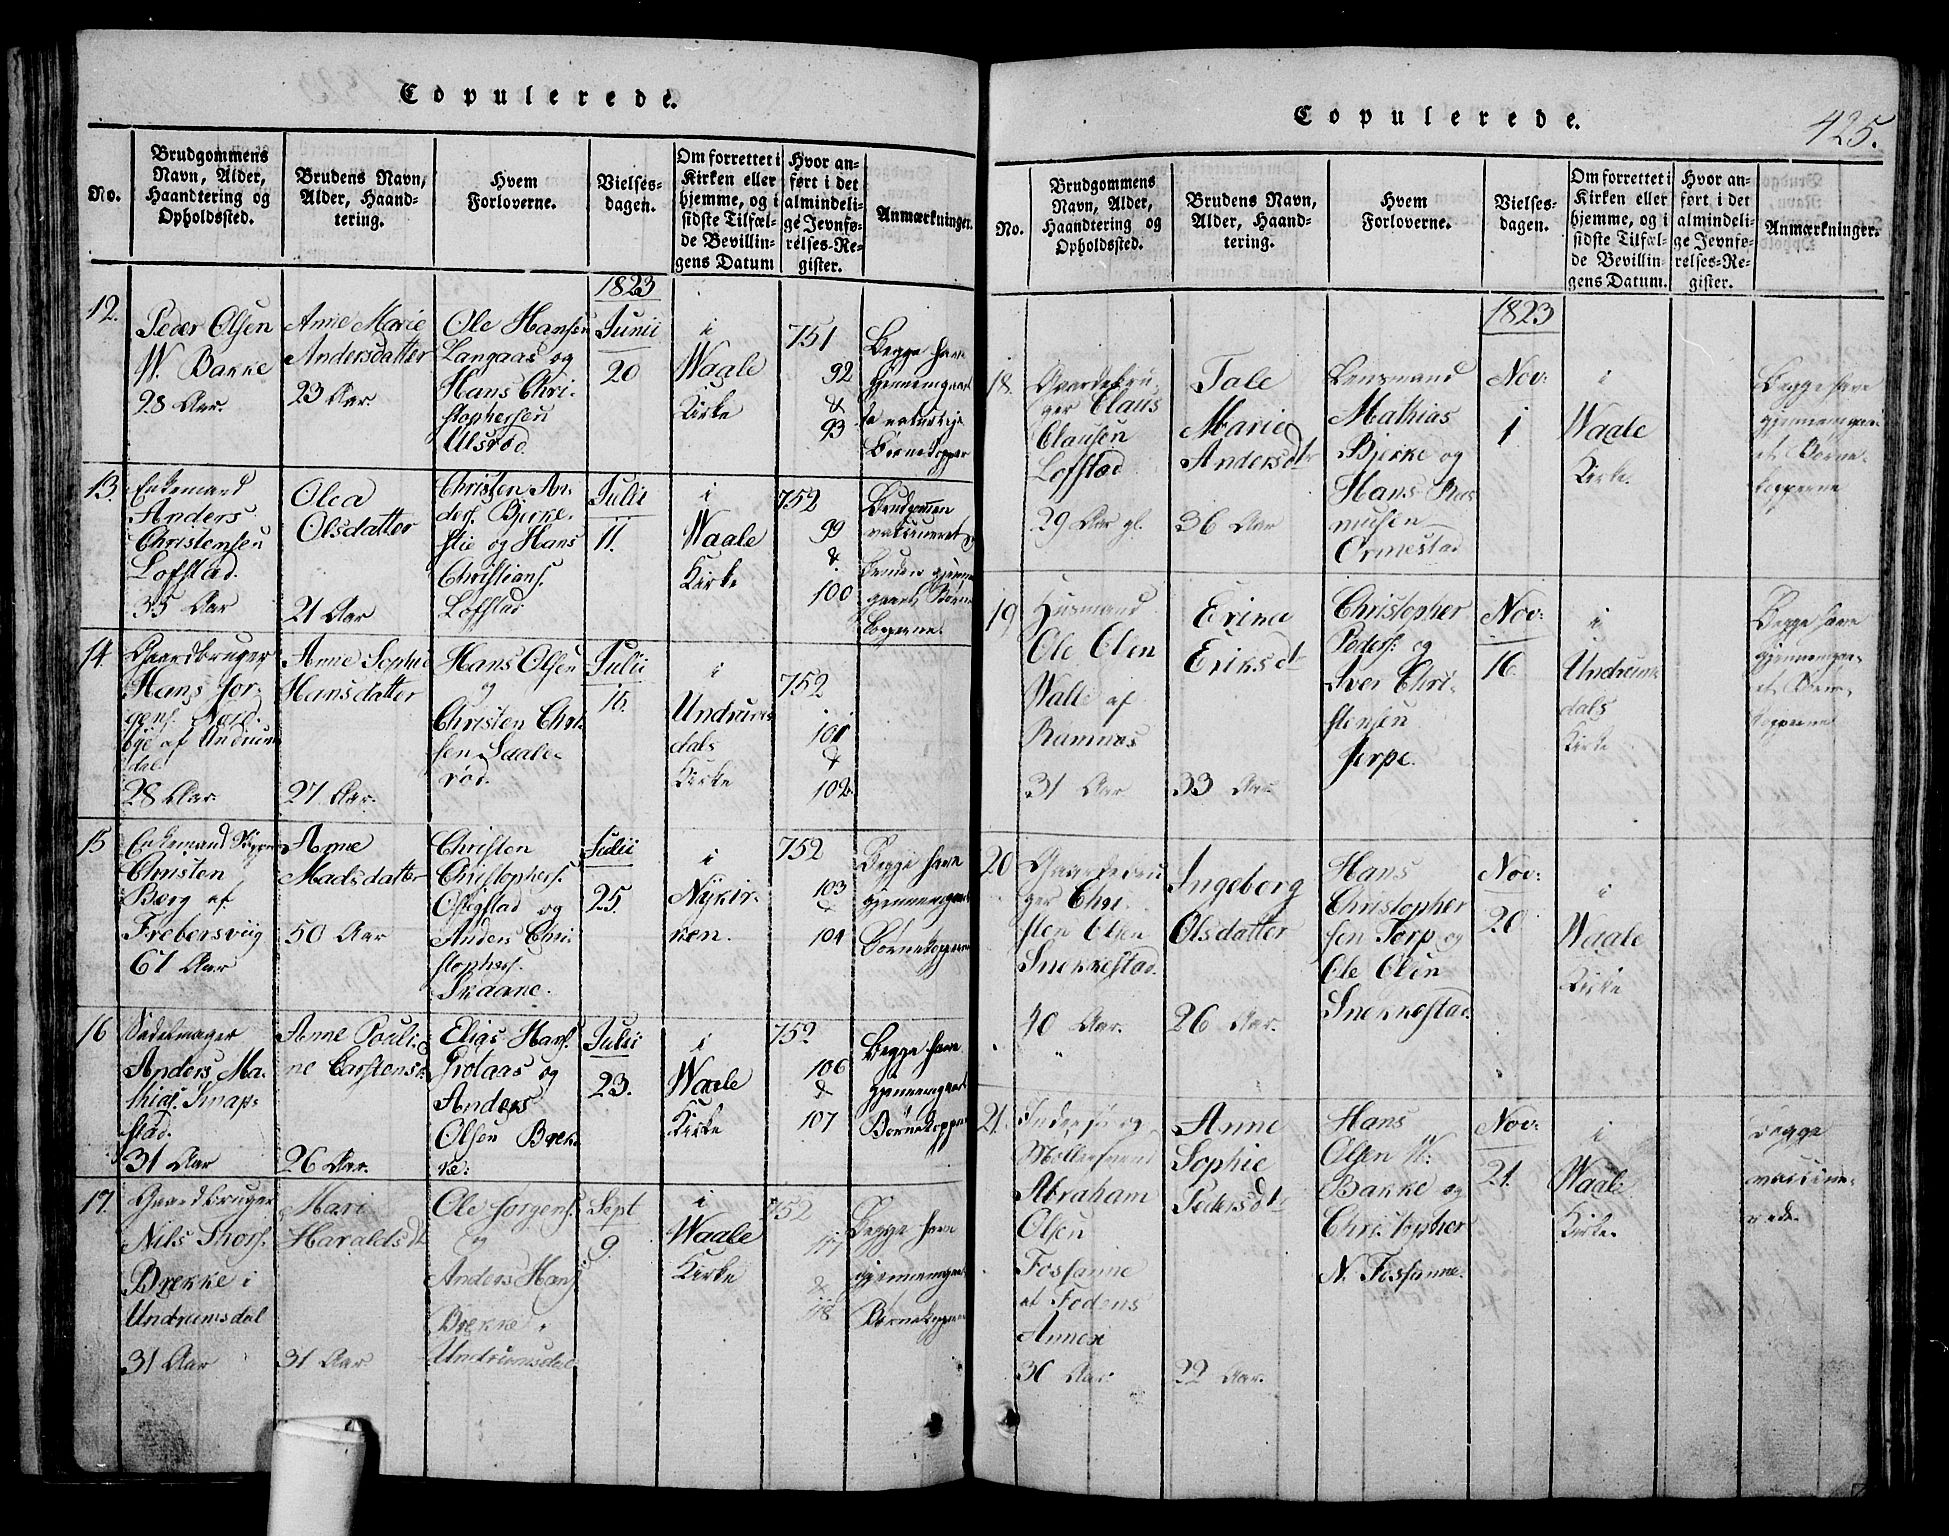 Copulerede.
No.
Brudgommens
Navn, Alder,
Haandtering og
Opholdssted.
Brudens Navn,
Alder, Haand-
tering.
Hvem
Forloverne.
Vielses-
dagen.
Om forrettet i
Kirken eller
hjemme, og i
sidste Tilfæl-
de Bevillin-
gens Datum
Hvor an-
ført i det
almindeli-
ge Jevnfø-
relses-Re-
gister.
Anmærkninger.
1823
12.
Peder Olsen
W. Bakke
28 Aar.
Anne Marie
Andersdatter
23 Aar.
Ole Hansen
Langaas og
Hans Chri-
stophersen
Ulsrød.
Junii
20
i
Waale
Kirke
751
92
&
93
Begge have
gjennemgaae-
de naturlige
Børnekopper
13.
Enkemand
Anders
Christensen
Lofstad.
35 Aar
Olea
Olsdatter
21 Aar
Christen An-
ders. Bjerke-
slie og Hans
Christians.
Lofstad
Julii
11.
i
Waale
Kirke
752
99
&
100
Brudgommen
vaksineret,
Bruden gjennem-
gaaet Børne-
kopperne.
14.
Gaardbruger
Hans Jør-
gens. Nord-
bye af Undrum-
dal
28 Aar.
Anne Sophie
Hansdatter
27 Aar.
Hans Olsen
og
Christen Chri-
sen Saale-
rød.
Julii
15.
i
Undrums-
dals
Kirke
752
101
&
102.
15
Enkemand Skipper
Christen
Bærg af
Frebersviig
67 Aar
Anne
Madsdatter
50 Aar
Christen
Christophers.
Ostigstad og
Anders Chri-
stophers.
Skaane.
Julii
25.
i
Nykir-
ken.
752
103
&
104
Begge have
gjennemgaaet
Børnekopperne
16
Sadelmager
Anders Ma-
thias. Knap-
stad.
31 Aar
Anne Pouli-
ne Carstensd.
26 Aar.
Elias Hans.
Prolaas og
Anders
Olsen Bæk-
ke:
Julii
23.
i
Waale
Kirke
752
106
&
107
Begge have
gjennemgaaet
Børnekopper
17.
Gaardbruger
Nils Thors.
Brekke i
Undrumsdal
31 Aar
Mari
Haraldsdt
31 Aar
Ole Jørgens.
og
Anders Hans.
Brekke i
Undrumsdal
Sept
9.
i
Waale
Kirke
752
117
&
118
Begge have
gjennemgaaet
Børnekopperne
Copulerede.
425.
No.
Brudgommens
Navn, Alder,
Haandtering og
Opholdssted.
Brudens Navn,
Alder, Haand-
tering.
Hvem
Forloverne.
Vielses-
dagen.
Om forrettet i
Kirken eller
hjemme, og i
sidste Tilfæl-
de Bevillin-
gens Datum.
Hvor an-
ført i det
almindeli-
ge Jevnfø-
relses-Re-
gister.
Anmærkninger.
1823
18.
Gaardebru-
ger Claus
Clausen
Lofstad
29 Aar gl.
Tale
Marie
Andersdt
36 Aar
Lensmand
Mathias
Bjerke og
Hans Ras-
musen
Ormestad
Nov:
1
i
Waale
Kirke.
Begge have
gjennemgaa-
et Børne-
kopperne
19
Husmand
Ole Olen
Walle af
Ramnæs
31 Aar
Erina
Eriksdt
33 Aar
Christopher
Peders. og
Iver Chri-
stensen
Jerpe.
Nov:
16.
i
Undrums-
dals
Kirke
Begge have
gjennemgaa-
et Børne-
kopperne
20
Gaardebru-
ger Chri-
sten Olsen
Snekkestad.
40 Aar.
Ingeborg
Olsdatter
26 Aar.
Hans
Christopher
sen Torp og
Ole Olen
Snekkestad.
Nov:
20
i
Waale
Kirke
21.
Inderst og
Møllersvend
Abraham
Olsen
Fossanne
af Fodens
Annex
30 Aar.
Anne
Sophie
Pedersdt
22 Aar.
Hans
Olsen W:
Bakke og
Christopher
N. Fossanne.
Nov:
21.
i
Waale
Kirke.
Begge
vaccine-
rede.